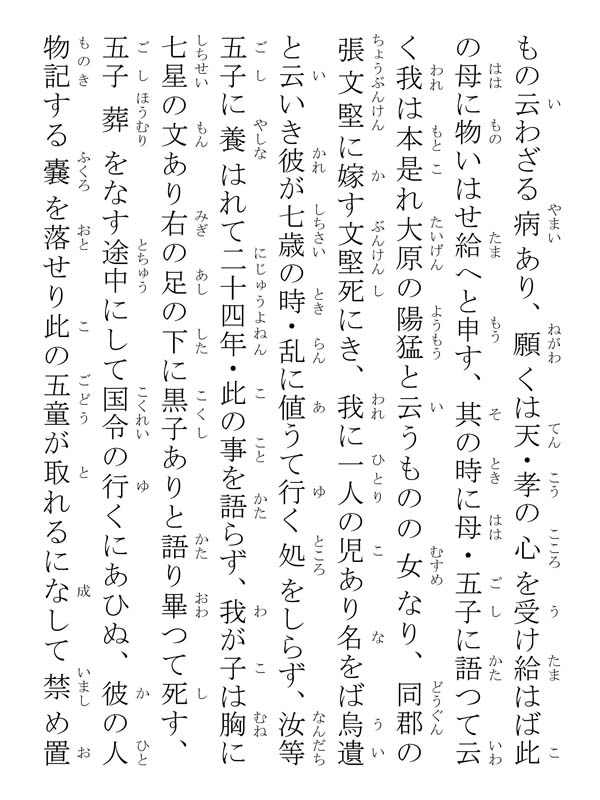 もの云わざる病あり、願くは天・孝の心を受け給はば此
の母に物いはせ給へと申す、其の時に母・五子に語つて云
く我は本是れ大原の陽猛と云うものの女なり、同郡の
張文堅に嫁す文堅死にき、我に一人の児あり名をば烏遺
と云いき彼が七歳の時・乱に値うて行く処をしらず、汝等
五子に養はれて二十四年・此の事を語らず、我が子は胸に
七星の文あり右の足の下に黒子ありと語り畢つて死す、
五子葬をなす途中にして国令の行くにあひぬ、彼の人
物記する嚢を落せり此の五童が取れるになして禁め置